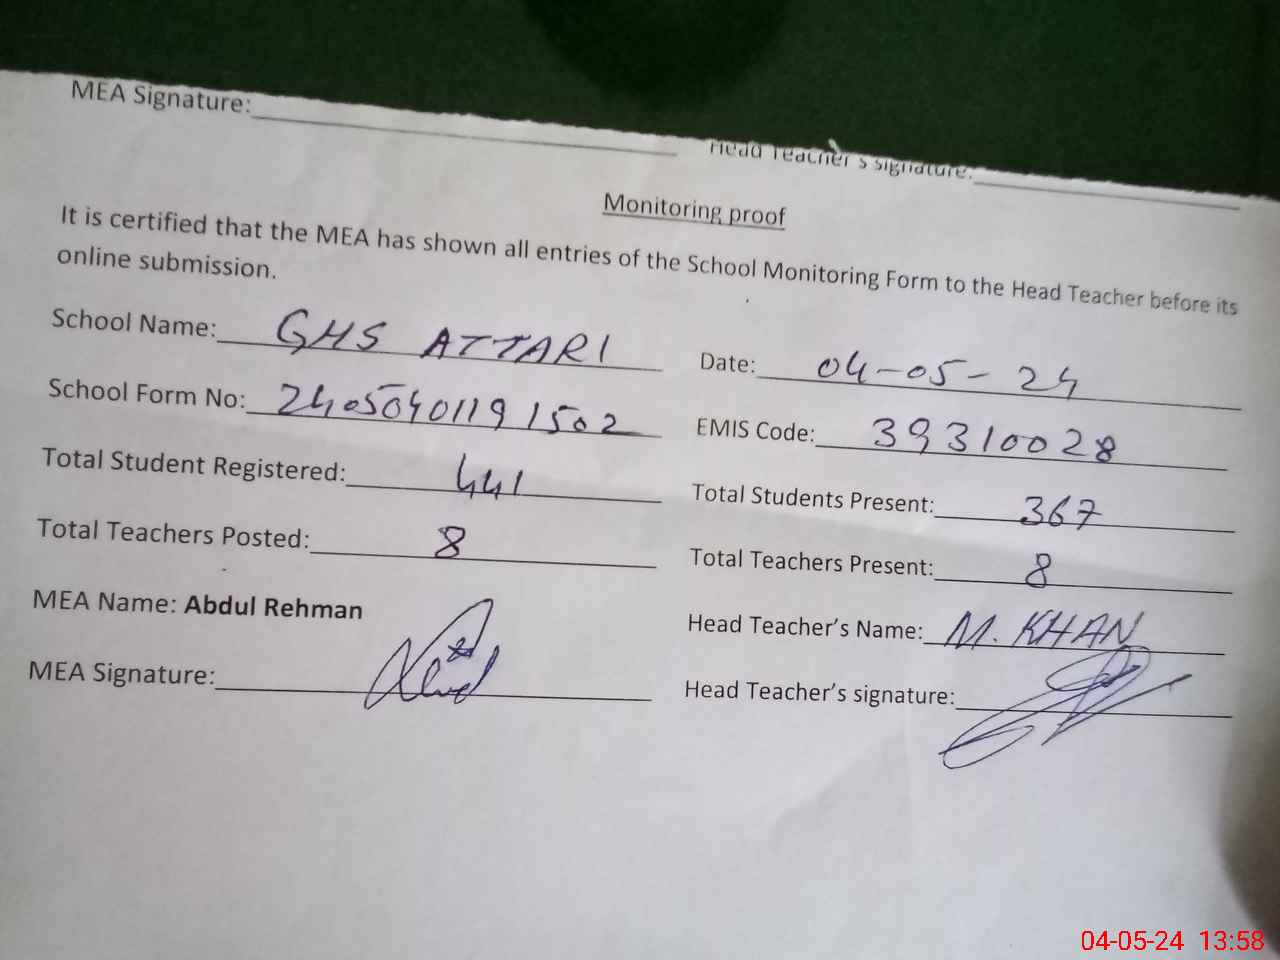 MEA Signature:
Head Teacher's signature:
Monitoring proof
It is certified that the MEA has shown all entries of the School Monitoring Form to the Head Teacher before its
online submission.
School Name: GHS ATTARI Date: 04-05-24
School Form No: 24050401191502 EMIS Code: 39310028
Total Student Registered: 441 Total Students Present: 367
Total Teachers Posted: 8 Total Teachers Present: 8
MEA Name: Abdul Rehman Head Teacher's Name: M. KHAN
MEA Signature: Head Teacher's signature:
04-05-24 13:58